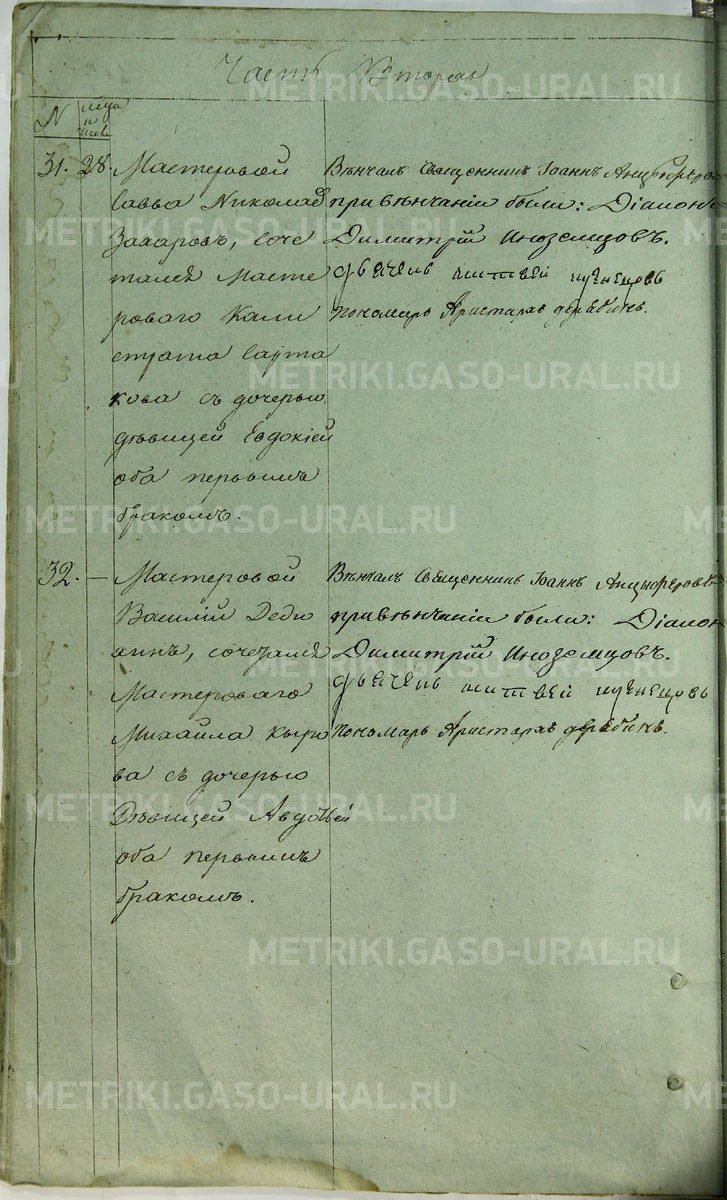 Часть Вторая
N
31. 28. Мастеровой
Савва Николаев
Захаровъ, соче
тался Масте
роваго Кали
страта Сарта
кова съ дочерью
дѣвицей Евдокіей
оба первымъ
бракомъ.
Вѣнчалъ Священникъ Іоаннъ Анцыферовъ
при вѣнчаніи были: Діаконъ
Димитрій Иноземцовъ.
дьячекъ матвей кузнецовъ
Пономарь Аристархъ дерябинъ.
32. — Мастеровой
Василій Дедю
хинъ, сочетался
Мастероваго
Михайла Кыро
ва съ дочерью
Дѣвицей Авдотьей
оба первымъ
бракомъ.
Вѣнчалъ Священникъ Іоаннъ Анцыферовъ
при вѣнчаніи были: Діаконъ
Димитрій Иноземцовъ.
дьячекъ матвей кузнецовъ
Пономарь Аристархъ дерябинъ.
METRIKI.GASO-URAL.RU